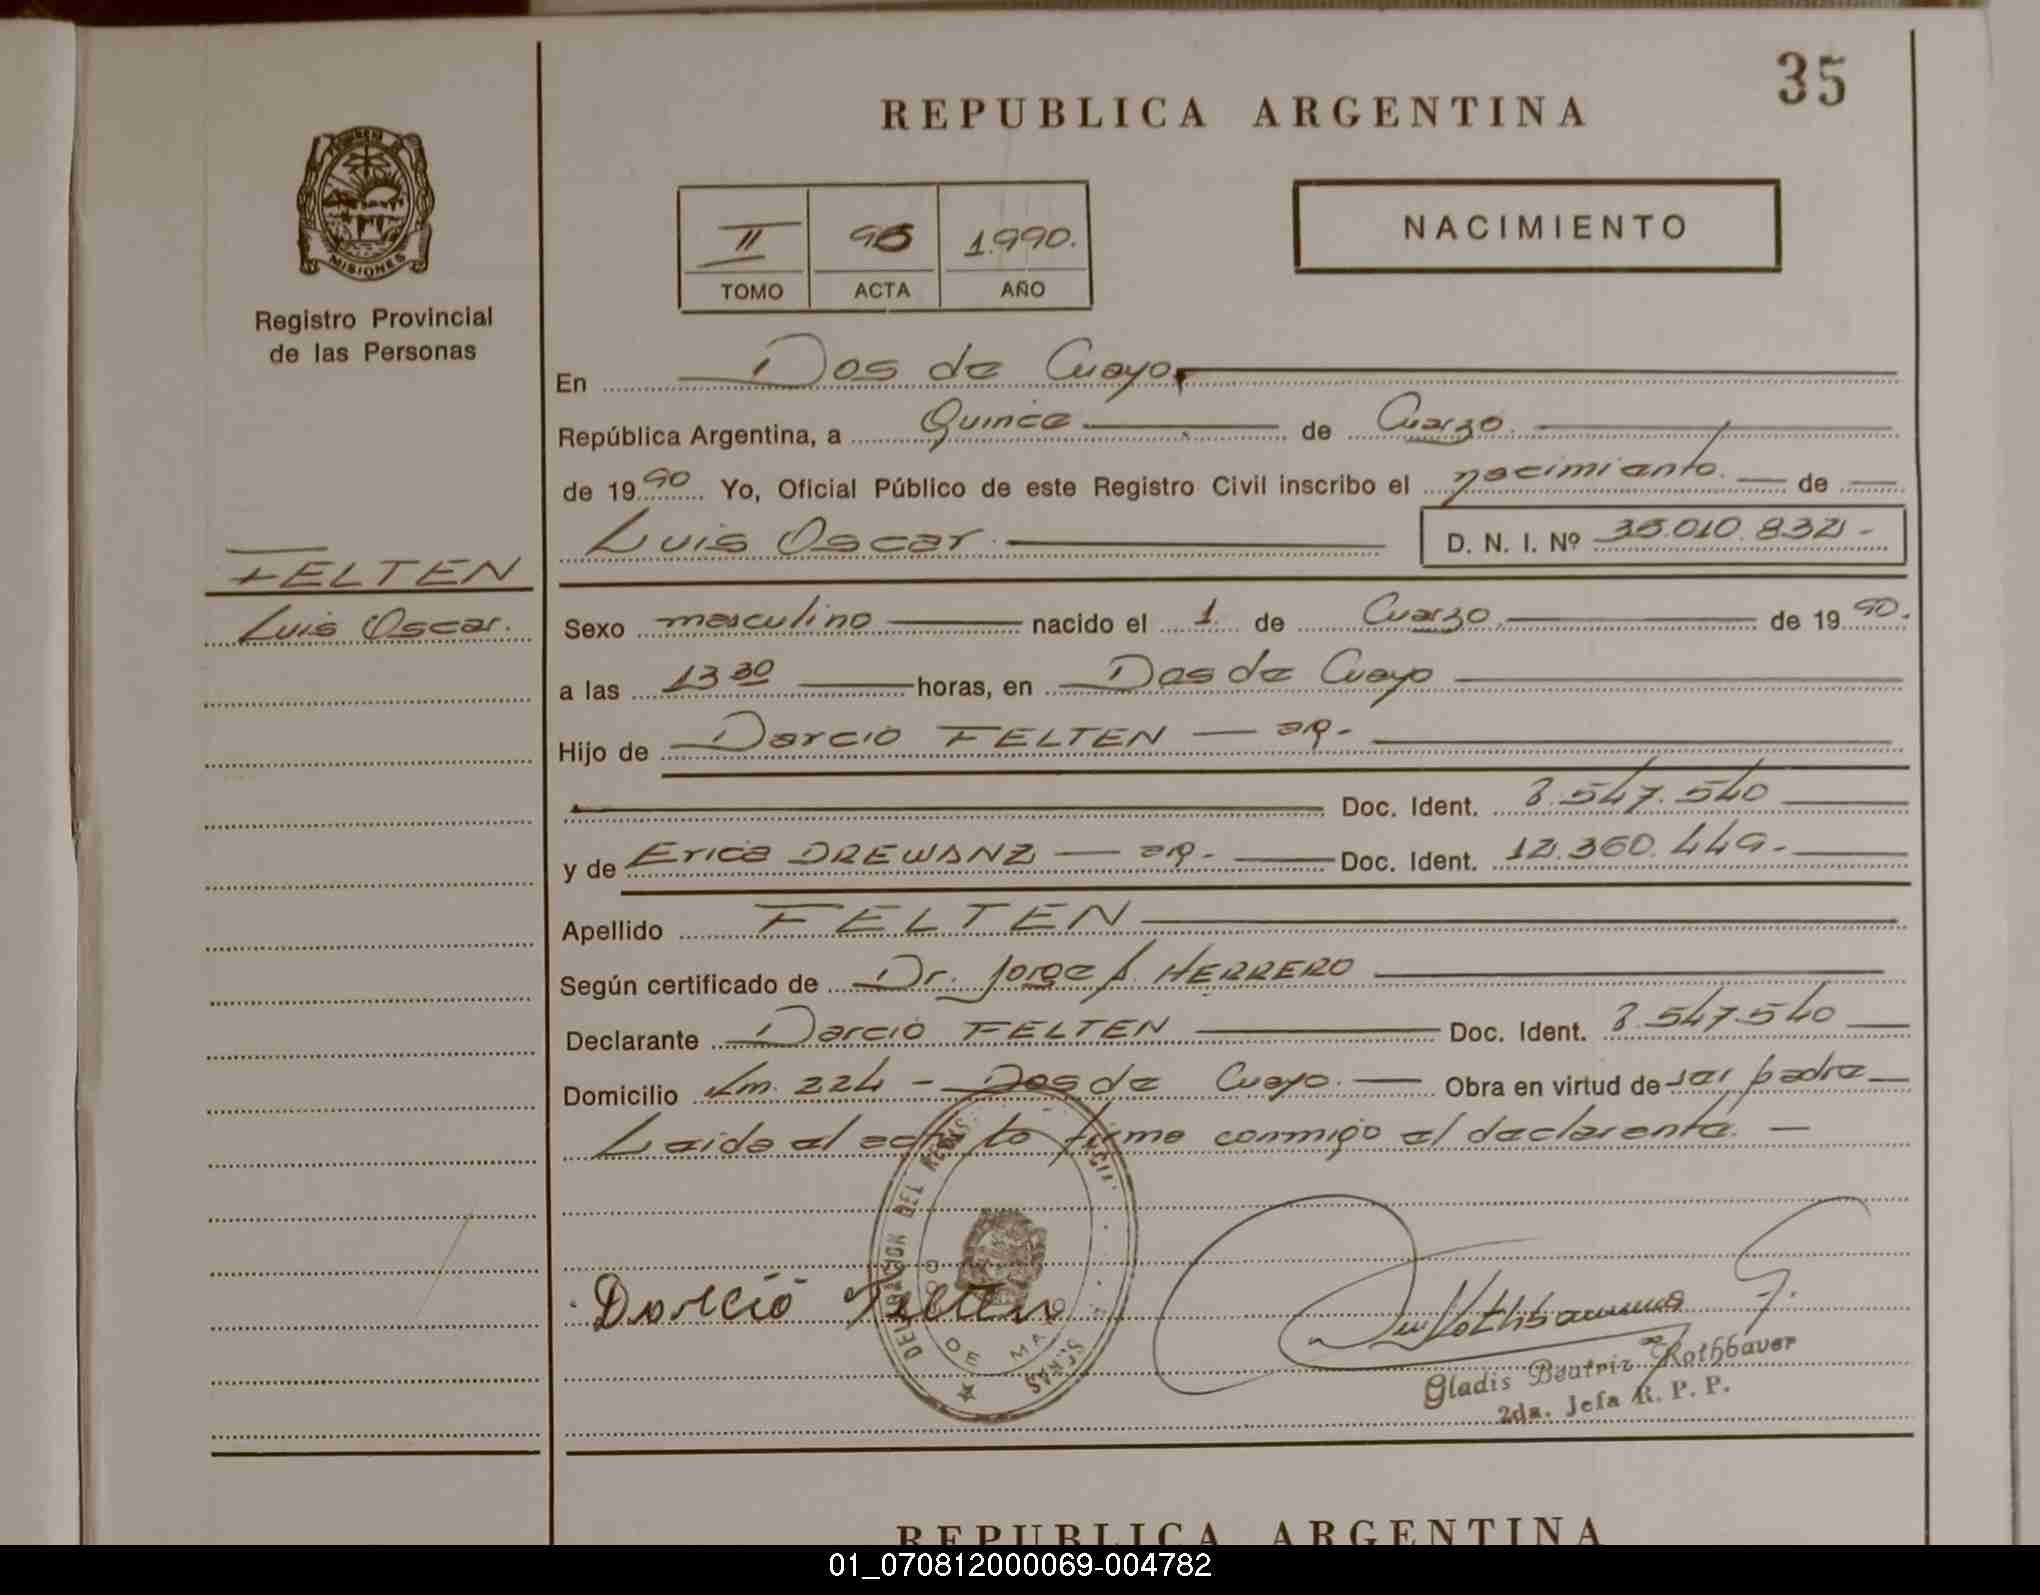 35
REPUBLICA ARGENTINA
MISIONES
Registro Provincial
de las Personas
II 1.990.
TOMO ACTA AÑO
NACIMIENTO
En Dos de Mayo
República Argentina, a Quince de Marzo
de 1990 Yo, Oficial Público de este Registro Civil inscribo el nacimiento. de
Luis Oscar D. N. I. Nº
FELTEN
Luis Oscar.
Sexo masculino nacido el 1 de Marzo de 1990.
a las 13 30 horas, en Dos de Mayo
Hijo de Darcio FELTEN
Doc. Ident. 8.547.540
y de Erica DREWANZ Doc. Ident. 12.360.449.-
Apellido FELTEN
Según certificado de Dr. Jorge A. HERRERO
Declarante Darcio FELTEN Doc. Ident. 8.547.540
Domicilio Km. 224 - Dos de Mayo. Obra en virtud de ser padre
Leida el acta la firma conmigo el declarante. —
Darcio Felten
Gladis Beatriz Rothbauer
2da. Jefa R. P. P.
REPUBLICA ARGENTINA
01_070812000069-004782